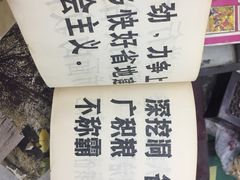 劲、力争上
多快好省地
会主义。
深挖洞
广积粮
不称霸